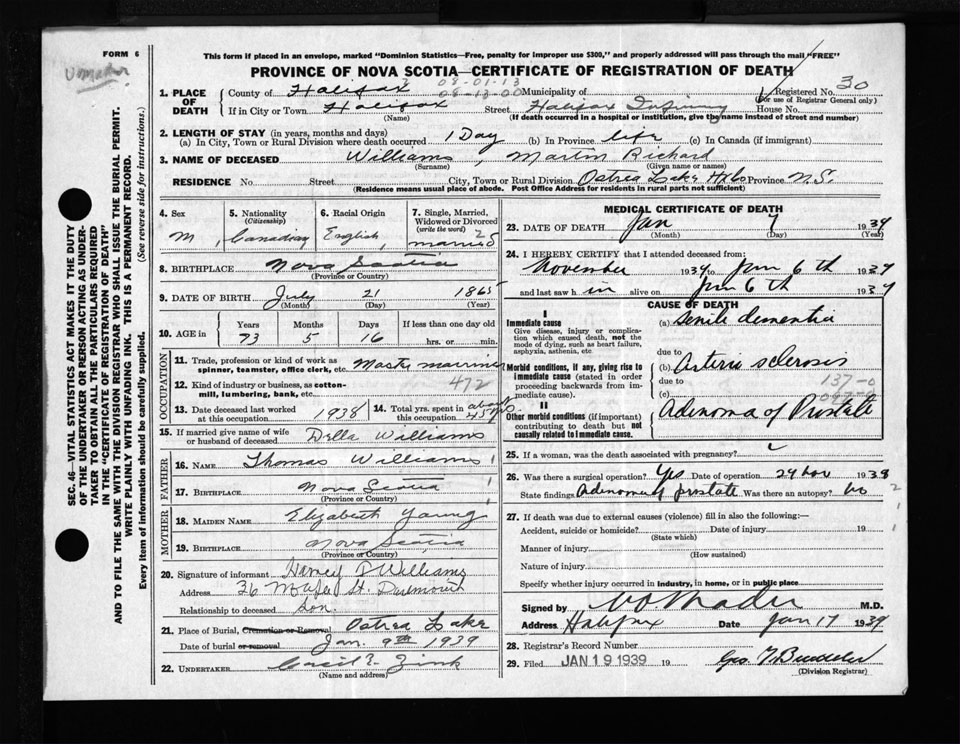 FORM 6
This form if placed in an envelope, marked "Dominion Statistics—Free, penalty for improper use $300," and properly addressed will pass through the mail "FREE"
PROVINCE OF NOVA SCOTIA—CERTIFICATE OF REGISTRATION OF DEATH
1. PLACE OF DEATH County of Halifax 08-01-13 08-13-00 Municipality of Registered No. 30
(For use of Registrar General only)
If in City or Town Halifax Street Halifax Infirmary House No.
(Name) (If death occurred in a hospital or institution, give the name instead of street and number)
2. LENGTH OF STAY (in years, months and days)
(a) In City, Town or Rural Division where death occurred 1 Day (b) In Province life (c) In Canada (if immigrant)
3. NAME OF DECEASED Williams, Martin Richard
(Surname) (Given name or names)
RESIDENCE No. Street City, Town or Rural Division Ostrea Lake Hfx Co Province N.S.
(Residence means usual place of abode. Post Office Address for residents in rural parts not sufficient)
4. Sex M
5. Nationality (Citizenship) Canadian
6. Racial Origin English
7. Single, Married, Widowed or Divorced (write the word) married 2
8. BIRTHPLACE Nova Scotia
(Province or Country)
9. DATE OF BIRTH July 21 1865
(Month) (Day) (Year)
10. AGE in Years 73 Months 5 Days 16 If less than one day old hrs. or min.
OCCUPATION
11. Trade, profession or kind of work as spinner, teamster, office clerk, etc. Master mariner
12. Kind of industry or business, as cotton-mill, lumbering, bank, etc. 472
13. Date deceased last worked at this occupation 1938 14. Total yrs. spent in this occupation about 45 yrs
15. If married give name of wife or husband of deceased Della Williams
FATHER
16. NAME Thomas Williams
17. BIRTHPLACE Nova Scotia
(Province or Country)
MOTHER
18. MAIDEN NAME Elizabeth Young
19. BIRTHPLACE Nova Scotia
(Province or Country)
20. Signature of informant Harvey D Williams
Address 36 St. Dartmouth
Relationship to deceased Son.
21. Place of Burial, Cremation or Removal Ostrea Lake
Date of burial or removal Jan. 9th 1939
22. UNDERTAKER Cecil E. Zink
(Name and address)
MEDICAL CERTIFICATE OF DEATH
23. DATE OF DEATH Jan 7 1939
(Month) (Day) (Year)
24. I HEREBY CERTIFY that I attended deceased from:
November 1937 to Jan 6th 1937
and last saw him alive on Jan 6th 1937
CAUSE OF DEATH
I
Immediate cause
Give disease, injury or complication which caused death, not the mode of dying, such as heart failure, asphyxia, asthenia, etc
(a) Senile dementia
due to
Morbid conditions, if any, giving rise to immediate cause (stated in order proceeding backwards from immediate cause).
(b) Arterio sclerosis
due to 137-0
(c)
II
Other morbid conditions (if important) contributing to death but not causally related to immediate cause.
Adenoma of Prostate
25. If a woman, was the death associated with pregnancy?
26. Was there a surgical operation? Yes Date of operation 29 Nov 1938
State findings Adenoma of prostate Was there an autopsy? No
27. If death was due to external causes (violence) fill in also the following:—
Accident, suicide or homicide? Date of injury 19
(State which)
Manner of injury
(How sustained)
Nature of injury
Specify whether injury occurred in industry, in home, or in public place
Signed by V O Mader M.D.
Address Halifax Date Jan 17 1939
28. Registrar's Record Number
29. Filed JAN 19 1939 19
(Division Registrar)
SEC. 46—VITAL STATISTICS ACT MAKES IT THE DUTY OF THE UNDERTAKER OR PERSON ACTING AS UNDERTAKER TO OBTAIN ALL THE PARTICULARS REQUIRED IN THE "CERTIFICATE OF REGISTRATION OF DEATH" AND TO FILE THE SAME WITH THE DIVISION REGISTRAR WHO SHALL ISSUE THE BURIAL PERMIT.
WRITE PLAINLY WITH UNFADING INK. THIS IS A PERMANENT RECORD.
Every item of information should be carefully supplied. (See reverse side for instructions.)